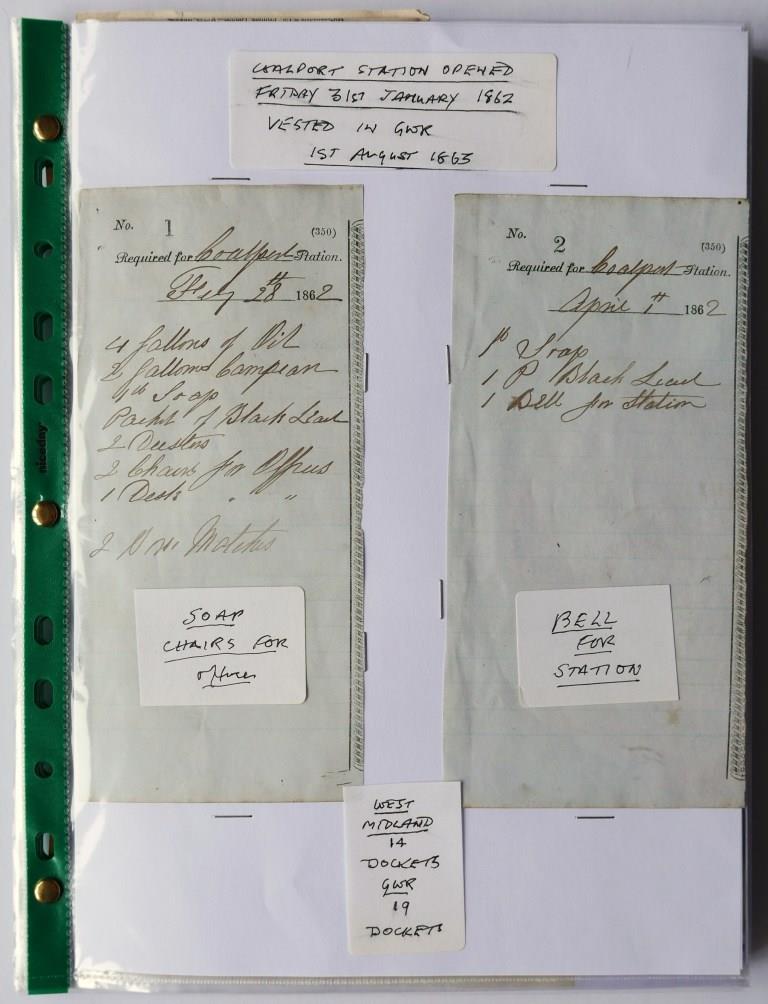 COALPORT STATION OPENED
FRIDAY 31ST JANUARY 1862
VESTED IN GWR
1ST AUGUST 1863
No. 1 (350)
Required for Coalport Station.
Feby 28th 1862
4 Gallons of Oil
2 Gallons Campean
1lb Soap
Packet of Black Lead
2 Dusters
2 Chairs for Offices
1 Desk " "
2 Doz Matches
SOAP
CHAIRS FOR
offices
No. 2 (350)
Required for Coalport Station.
April 1st 1862
1lb Soap
1 P Black Lead
1 Bell for Station
BELL
FOR
STATION
WEST
MIDLAND
14
DOCKETS
GWR
19
DOCKETS
niceday